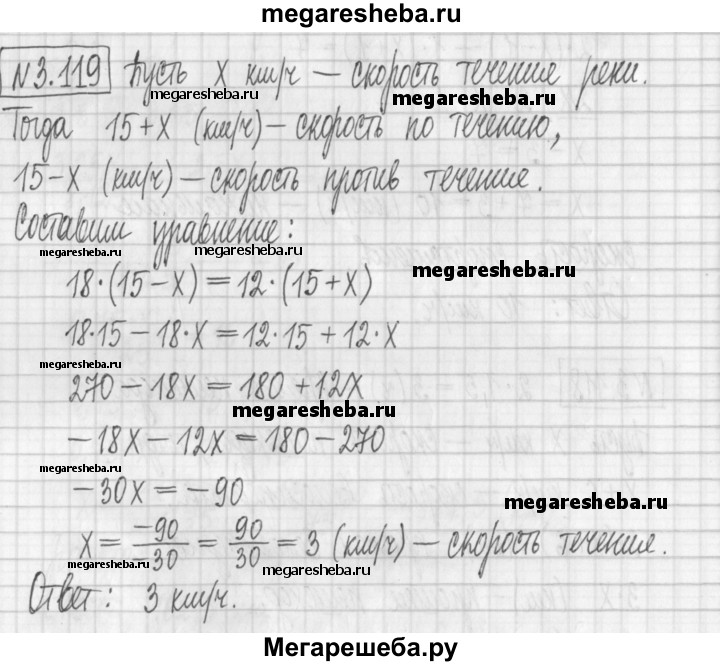 megaresheba.ru
N3.119 Пусть x км/ч – скорость течения реки.
megaresheba.ru
megaresheba.ru
Тогда 15+x (км/ч) – скорость по течению,
15-x (км/ч) – скорость против течения.
Составим уравнение:
megaresheba.ru
megaresheba.ru
18·(15-x)=12·(15+x)
18·15-18·x=12·15+12·x
megaresheba.ru
270-18x=180+12x
megaresheba.ru
-18x-12x=180-270
megaresheba.ru
-30x=-90
megaresheba.ru
x=-90/-30=90/30=3 (км/ч) – скорость течения.
megaresheba.ru
megaresheba.ru
Ответ: 3 км/ч.
Мегарешеба.ру